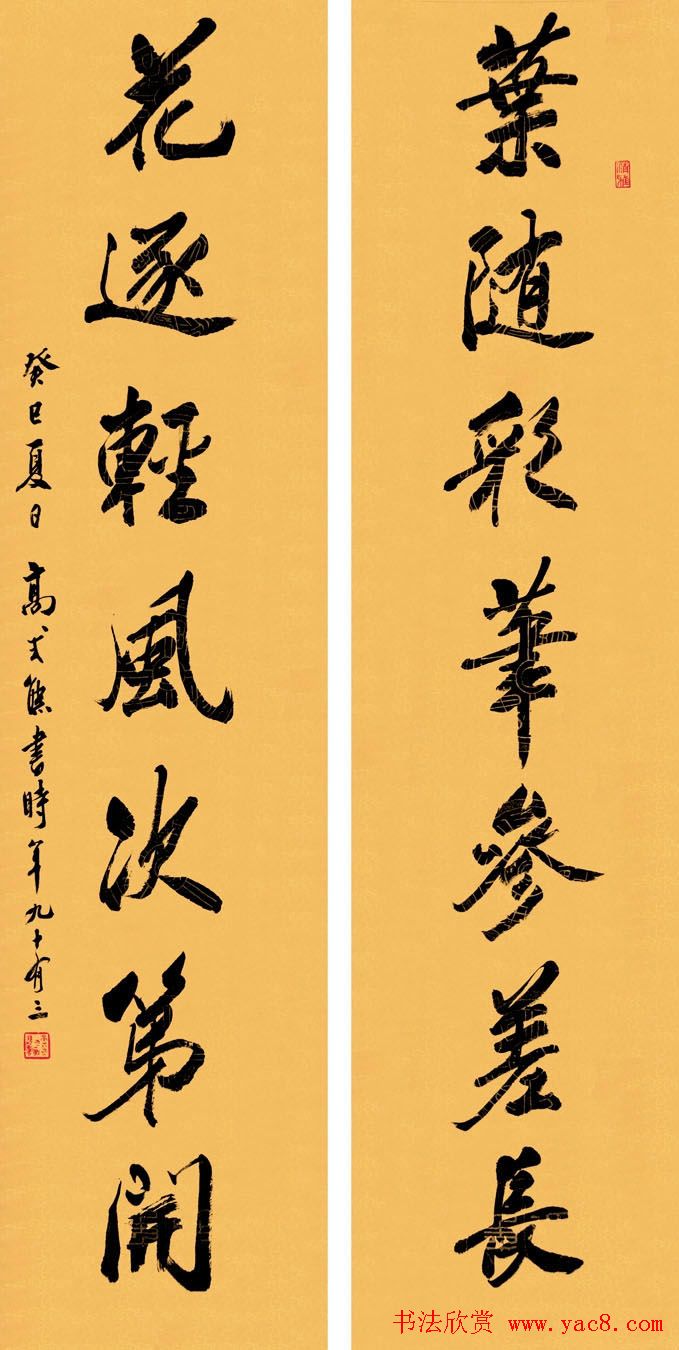 葉随彩筆參差長
花逐輕風次第開
癸巳夏日 高式熊書時年九十有三
书法欣赏 www.yac8.com